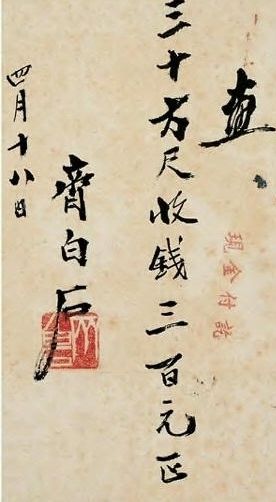 畫
三十方尺收钱三百元正
现金付訖
齊白石
四月十八日